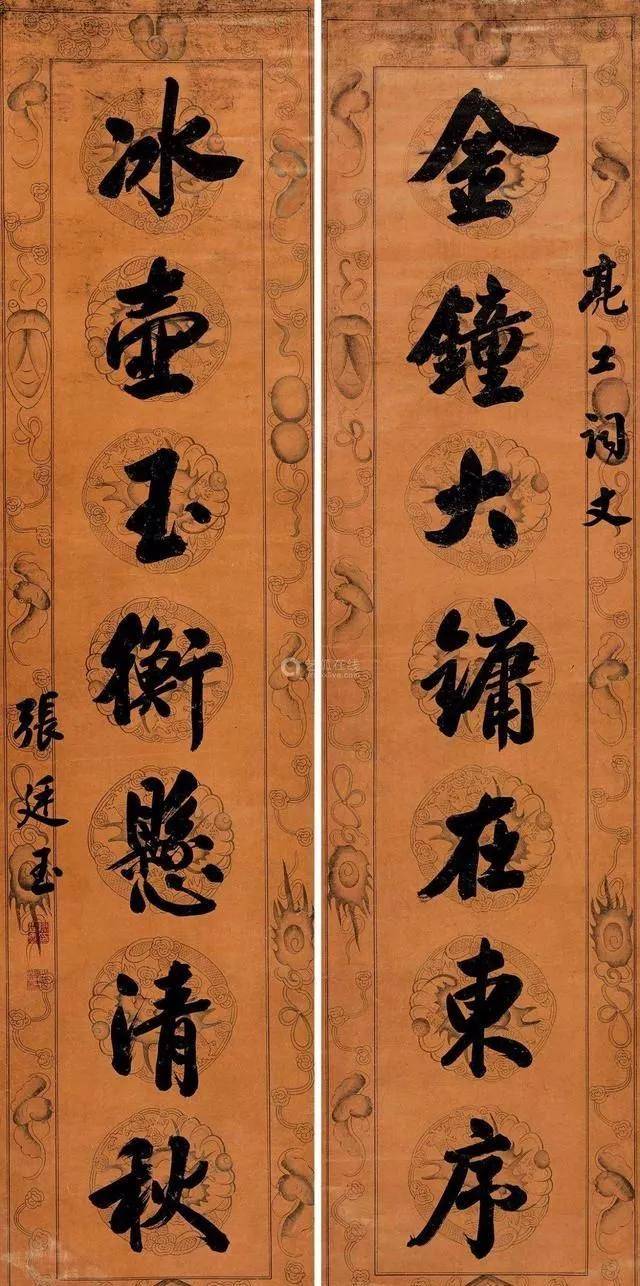 亮工詞丈
金鐘大鏞在東序
冰壺玉衡懸清秋
張廷玉